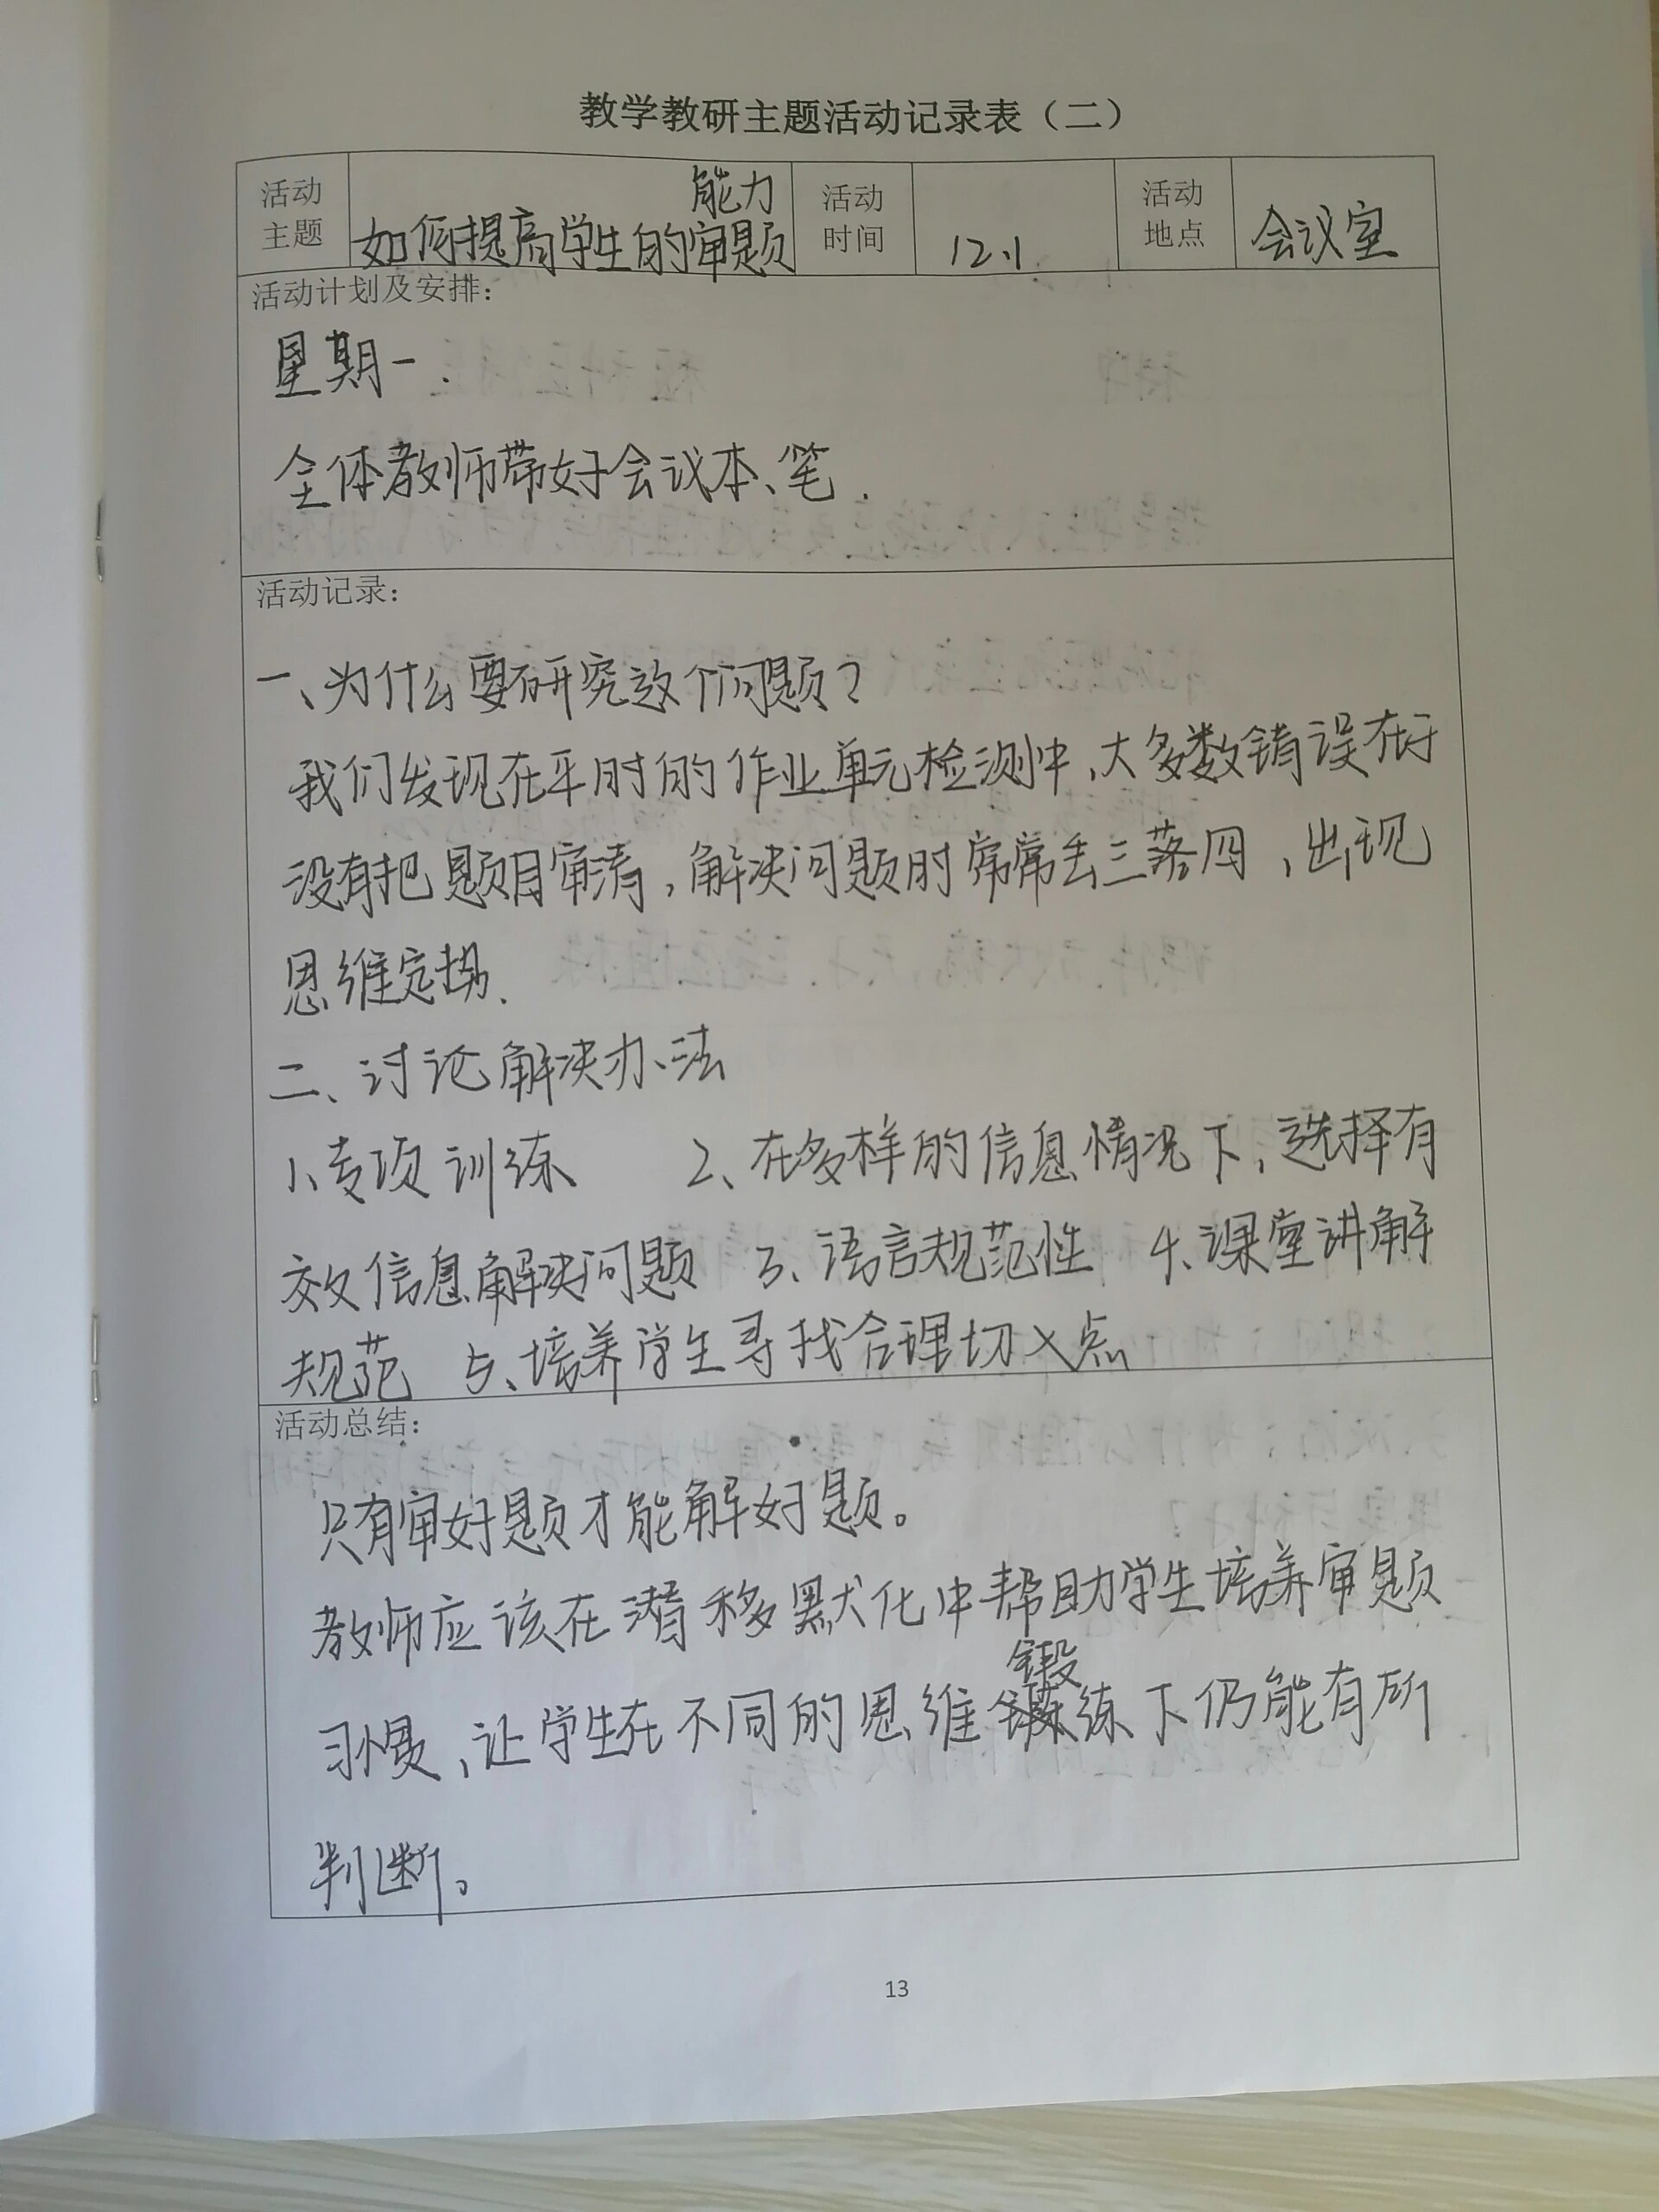 教学教研主题活动记录表（二）
活动主题 如何提高学生的审题能力 活动时间 12.1 活动地点 会议室
活动计划及安排：
星期一.
全体教师带好会议本、笔.
活动记录：
一、为什么要研究这个问题？
我们发现在平时的作业单元检测中,大多数错误在于
没有把题目审清,解决问题时常常丢三落四,出现
思维定势.
二、讨论解决办法
1、专项训练 2、在多样的信息情况下,选择有
效信息解决问题 3、语言规范性 4、课堂讲解
规范 5、培养学生寻找合理切入点
活动总结：
只有审好题才能解好题。
教师应该在潜移默化中帮助学生培养审题
习惯,让学生在不同的思维锻练下仍能有所
判断。
13